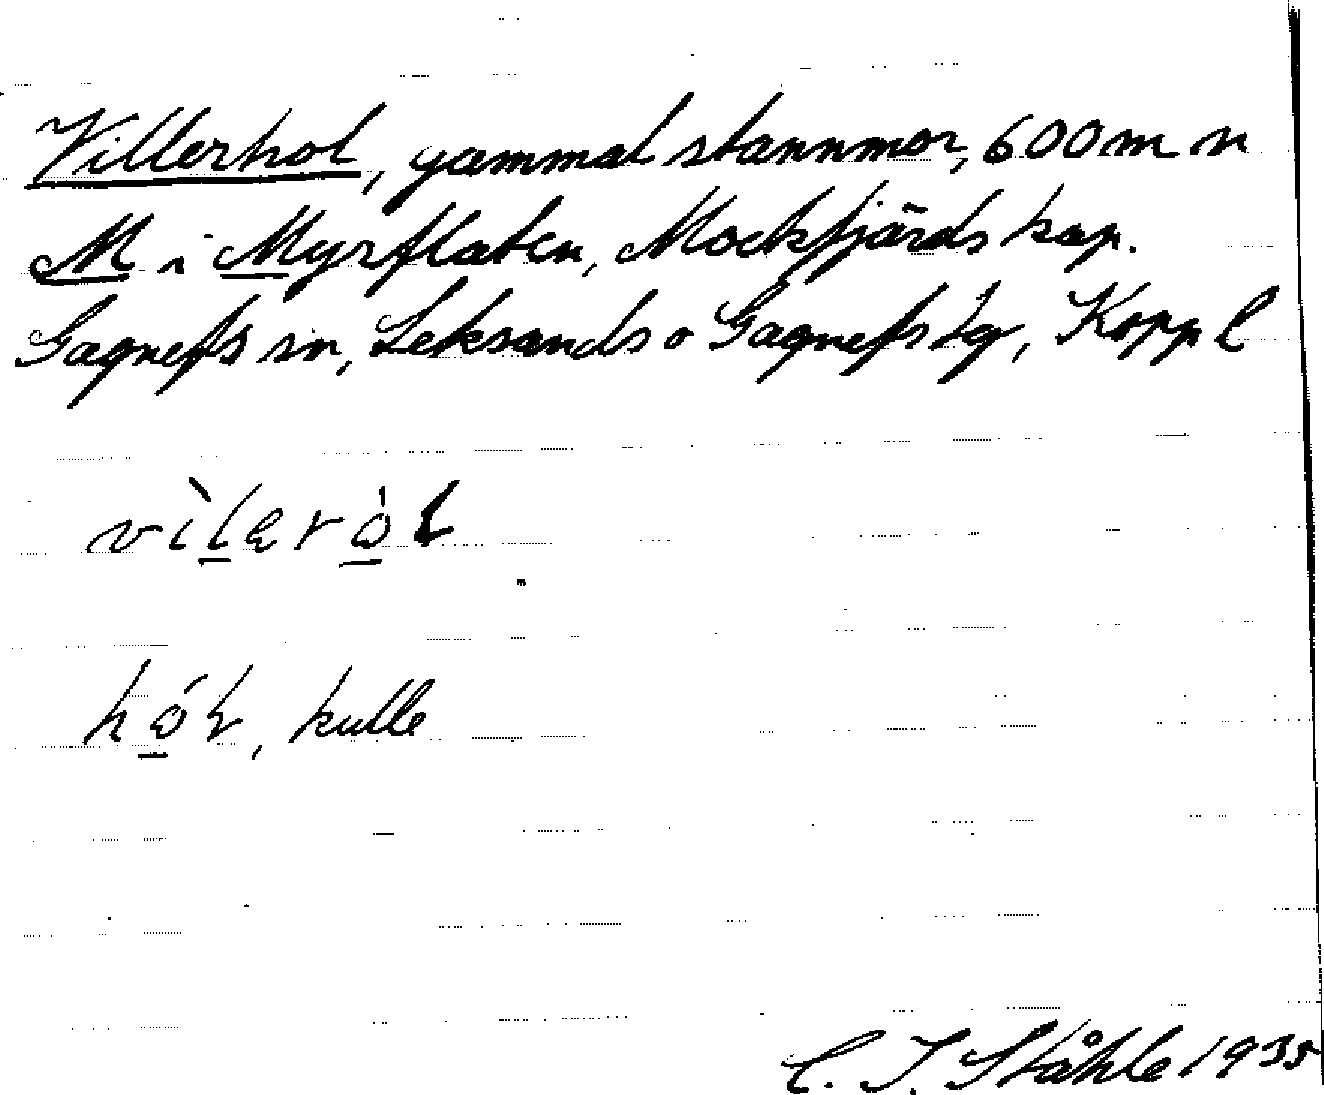 Villerhol, gammal stannmor, 600 m n
M i Myrflaten, Mockfjärds kap.
Gagnefs sn, Leksands o Gagnefs tg, Kopp l
vìleròl
hól, kulle
C. I. Ståhle 1935